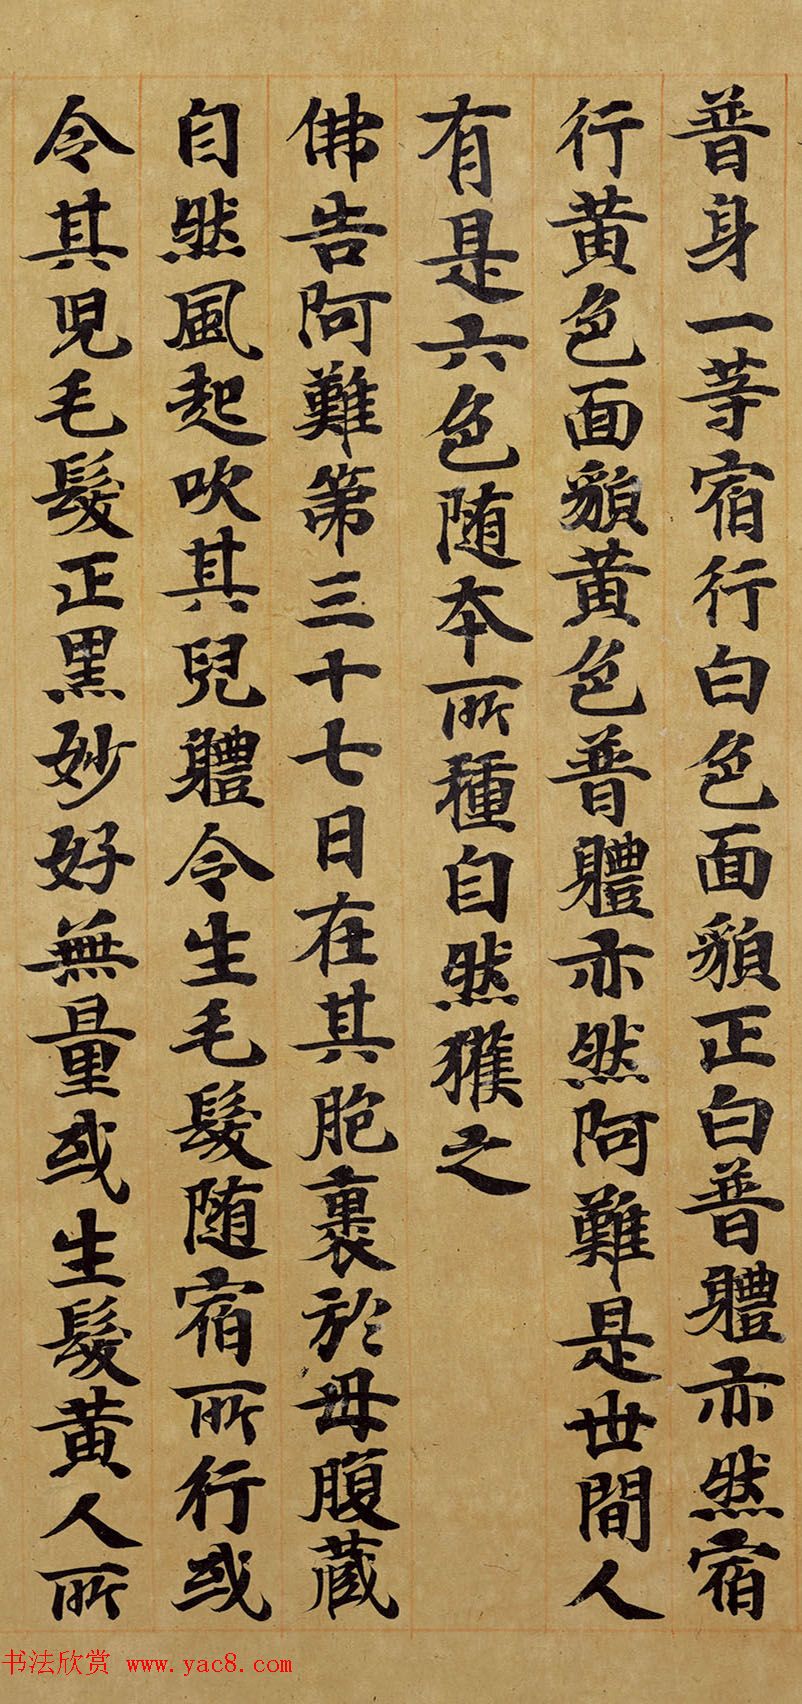 普身一等宿行白色面䫉正白普體亦然宿
行黃色面䫉黃色普體亦然阿難是世間人
有是六色随本所種自然獲之
佛告阿難第三十七日在其胞裹於母腹藏
自然風起吹其兒體令生毛髮随宿所行或
令其兒毛髮正黑妙好無量或生髮黃人所
书法欣赏 www.yac8.com